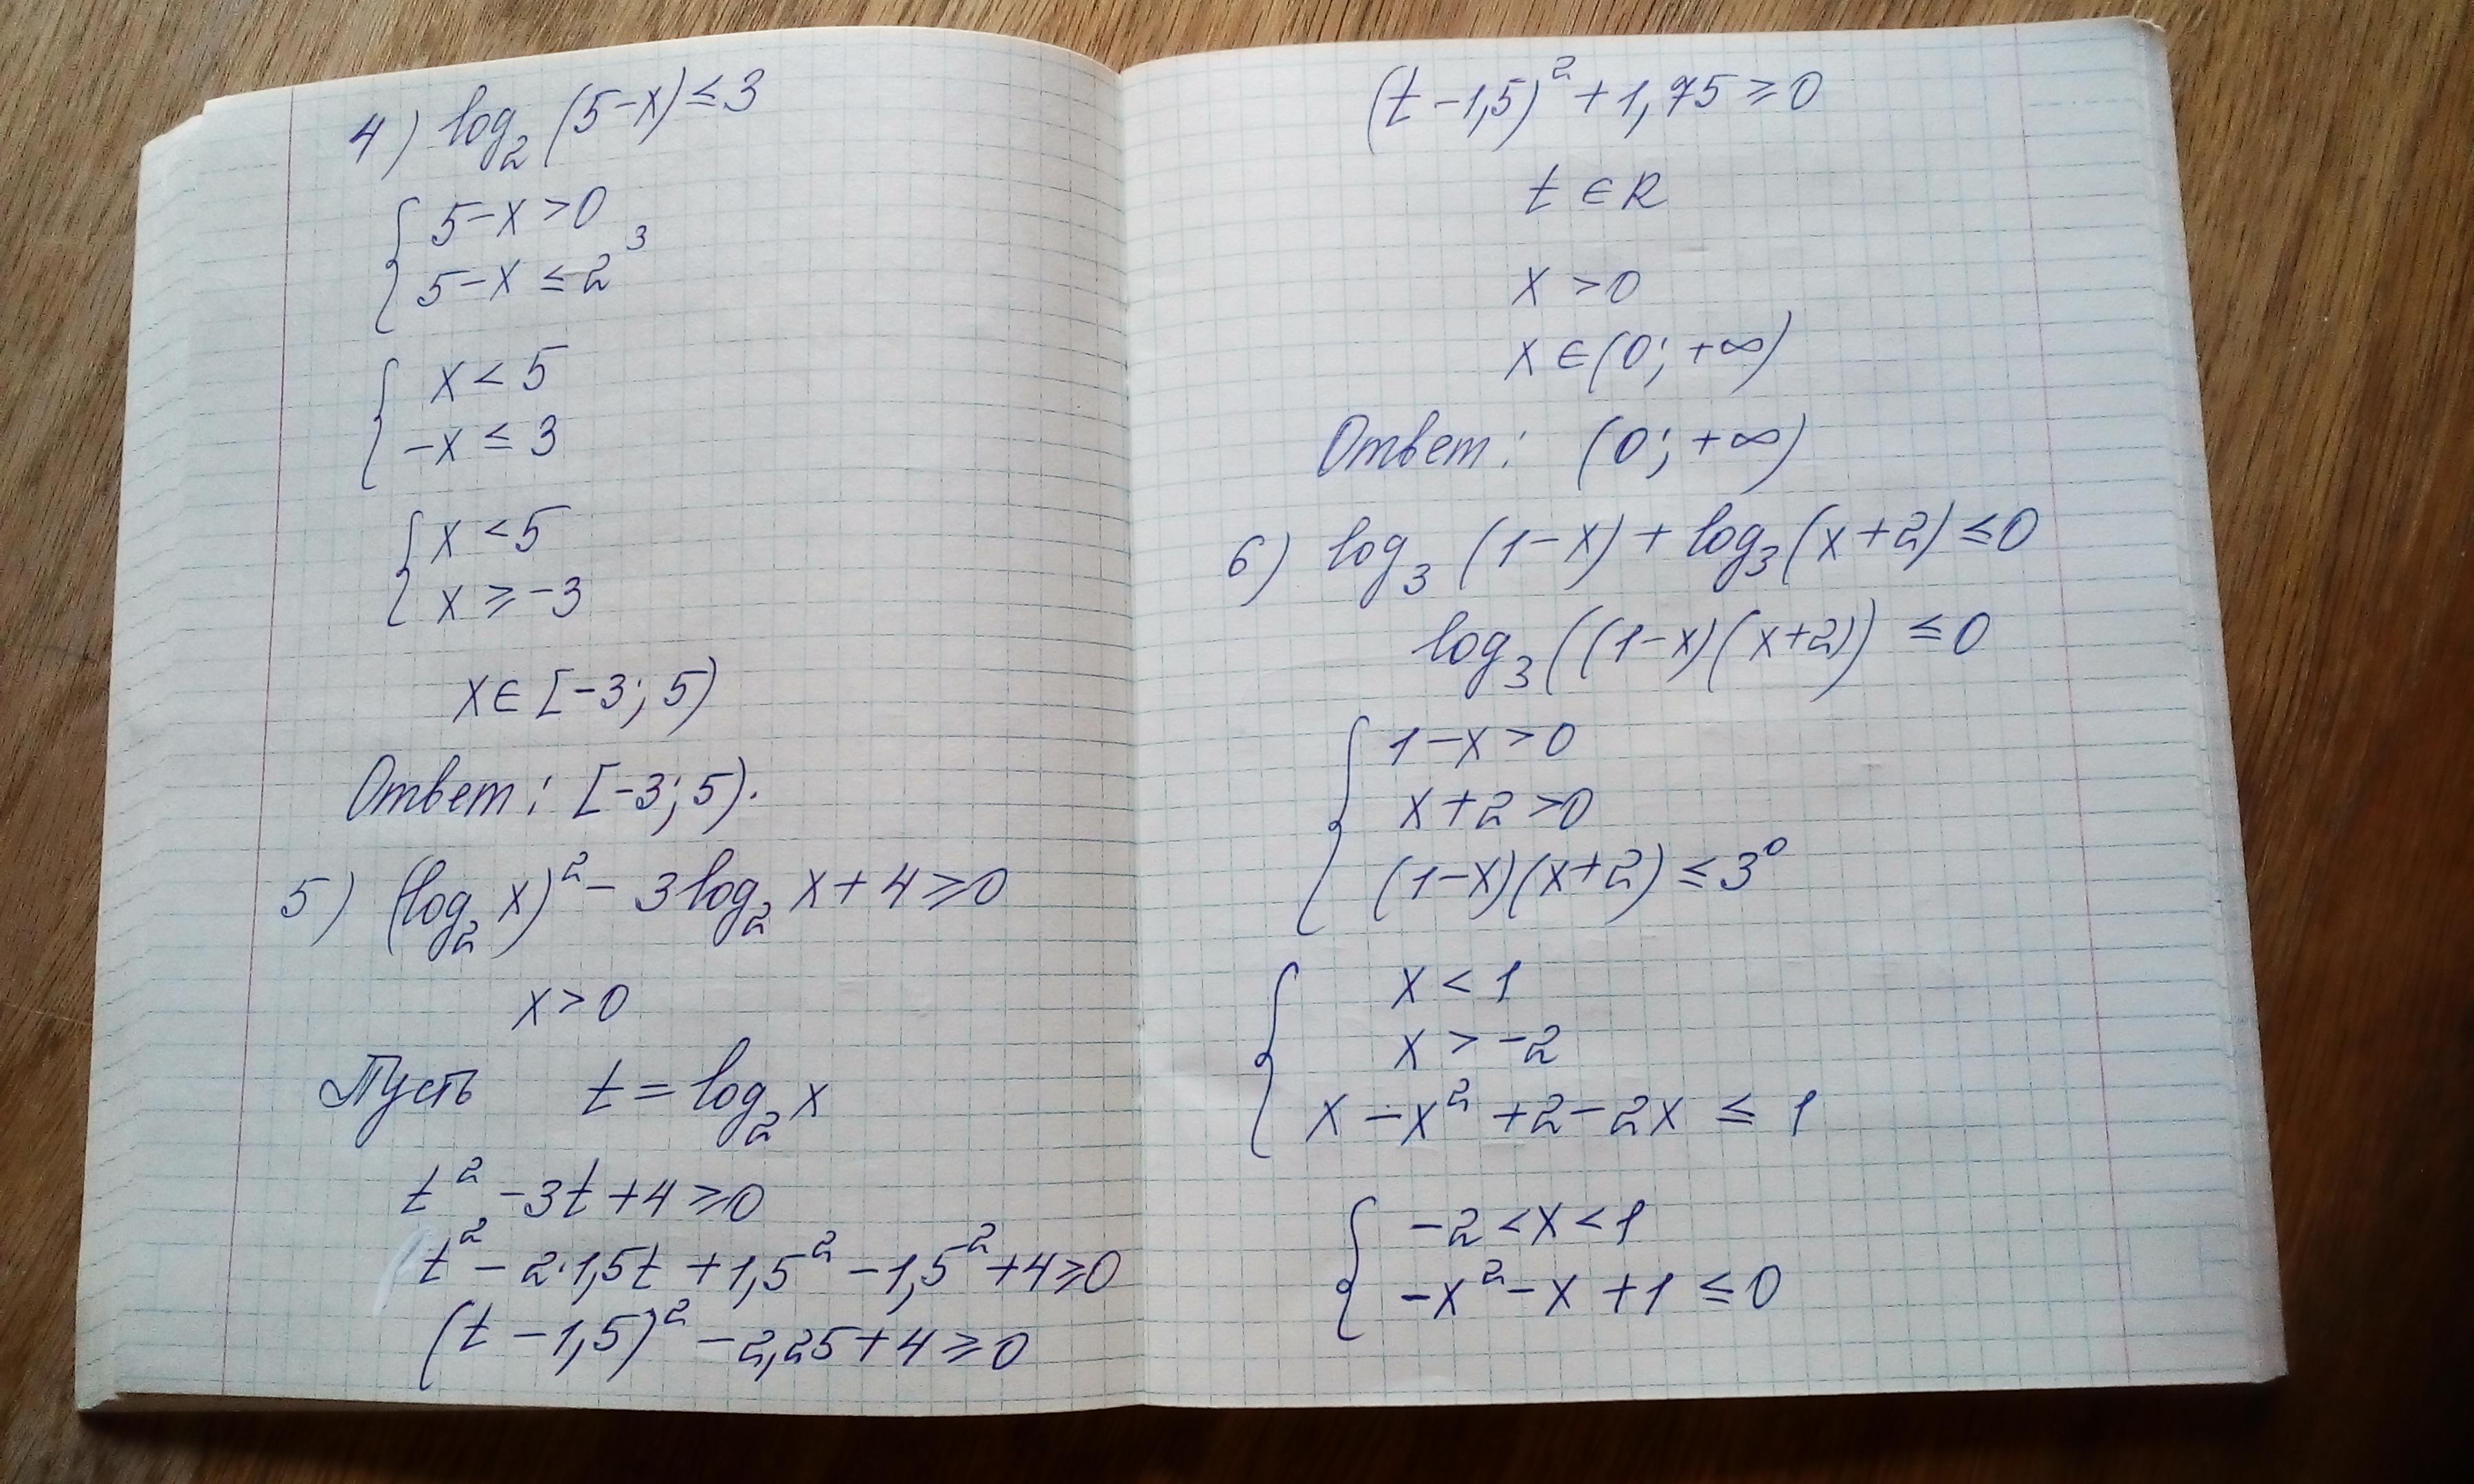 4) log₂(5-x)≤3
{5-x>0
5-x≤2³
{x<5
-x≤3
{x<5
x≥-3
x∈[-3;5)
Ответ: [-3;5).
5) (log₂x)²-3log₂x+4≥0
x>0
Пусть t=log₂x
t²-3t+4≥0
t²-2·1,5t+1,5²-1,5²+4≥0
(t-1,5)²-2,25+4≥0
(t-1,5)²+1,75≥0
t∈R
x>0
x∈(0;+∞)
Ответ: (0;+∞)
6) log₃(1-x)+log₃(x+2)≤0
log₃((1-x)(x+2))≤0
{1-x>0
x+2>0
(1-x)(x+2)≤3⁰
{x<1
x>-2
x-x²+2-2x≤1
{-2<x<1
-x²-x+1≤0